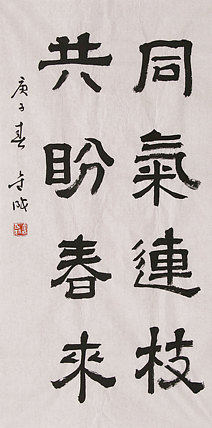 同氣連枝
共盼春來
庚子春